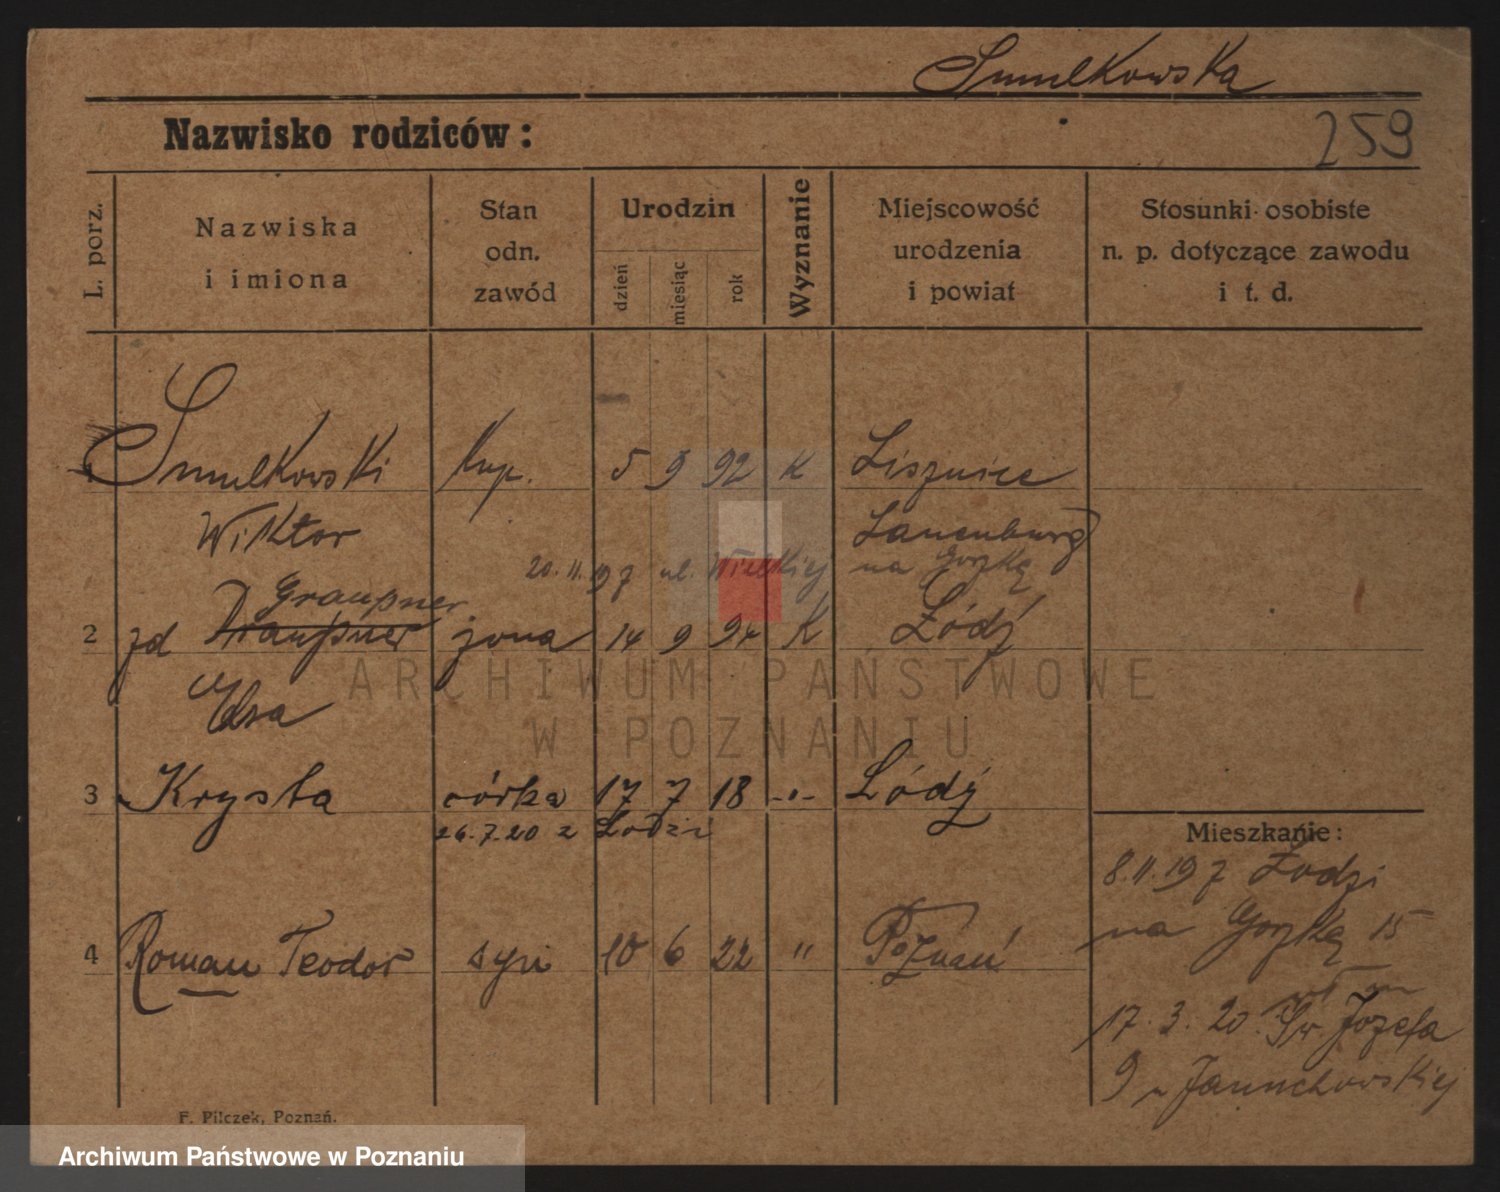 Smulkowska
Nazwisko rodziców:
259
L. porz.
Nazwiska
i imiona
Stan
odn.
zawód
Urodzin
dzień
miesiąc
rok
Wyznanie
Miejscowość
urodzenia
i powiat
Stosunki osobiste
n. p. dotyczące zawodu
i t. d.
1 Smulkowski Kup. 5 9 92 K Lisznice
Wiktor Lauenburg
20.11.19 z ul. Wielkiej na Gorką
Graupner
2 zd Draupner żona 14 9 94 K Łódź
Elsa
3 Krysta córka 17 7 18 -"- Łódź
26.7.20 z Łodzi
Mieszkanie:
8.11.19 z Łodzi
na Gorką 15
4 Roman Teodor syn 10 6 22 " Poznań
17.3.20. Św. Józefa
9 u Januchowskiej
F. Pilczek, Poznań.
ARCHIWUM PAŃSTWOWE
W POZNANIU
Archiwum Państwowe w Poznaniu